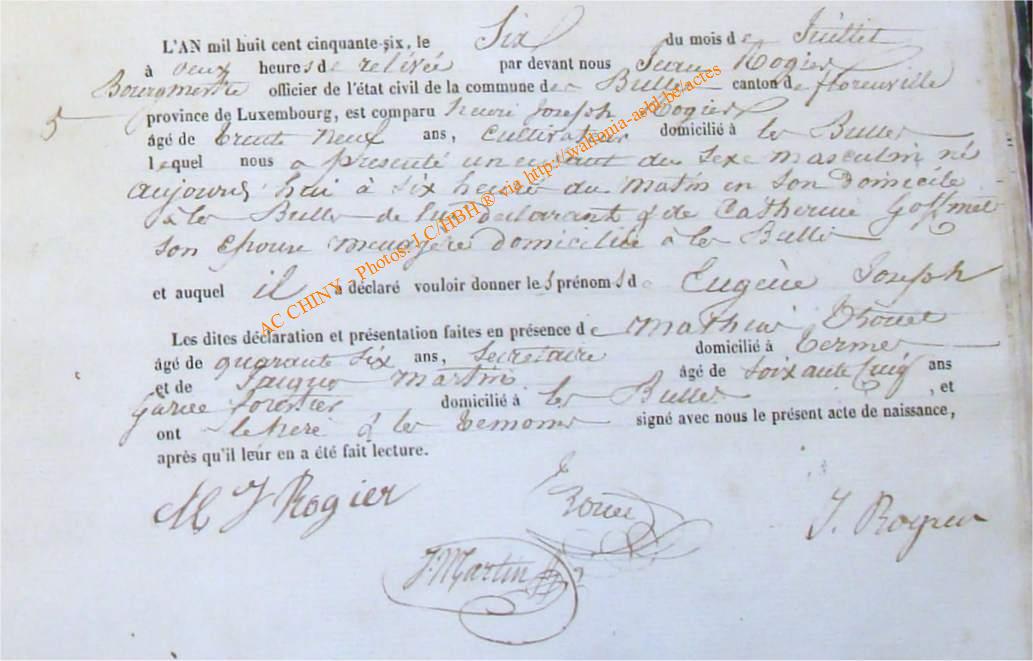 L'AN mil huit cent cinquante-six, le Six du mois de Juillet
à deux heures de relevée par devant nous Jean Rogier
Bourgmestre officier de l'état civil de la commune des Bulles canton de florenville
5 province de Luxembourg, est comparu henri Joseph Rogier
âgé de trente neuf ans, Cultivateur domicilié à les Bulles
lequel nous a présenté un enfant du sexe masculin né
aujourd'hui à six heures du matin en son domicile
à les Bulles de lui déclarant & de Catherine
son épouse ménagère domiciliée à les Bulles
et auquel il a déclaré vouloir donner les prénoms de Eugène Joseph
Les dites déclaration et présentation faites en présence de Mathieu
âgé de quarante six ans, Secretaire domicilié à termes
et de Martin âgé de soixante cinq ans
Garde forestier domicilié à les Bulles, et
ont le père & les témoins signé avec nous le présent acte de naissance,
après qu'il leur en a été fait lecture.
J Rogier
J. Rogier
J. Martin
AC CHINY Photos: LC/HBH ® via http://wallonia-asbl.be/actes